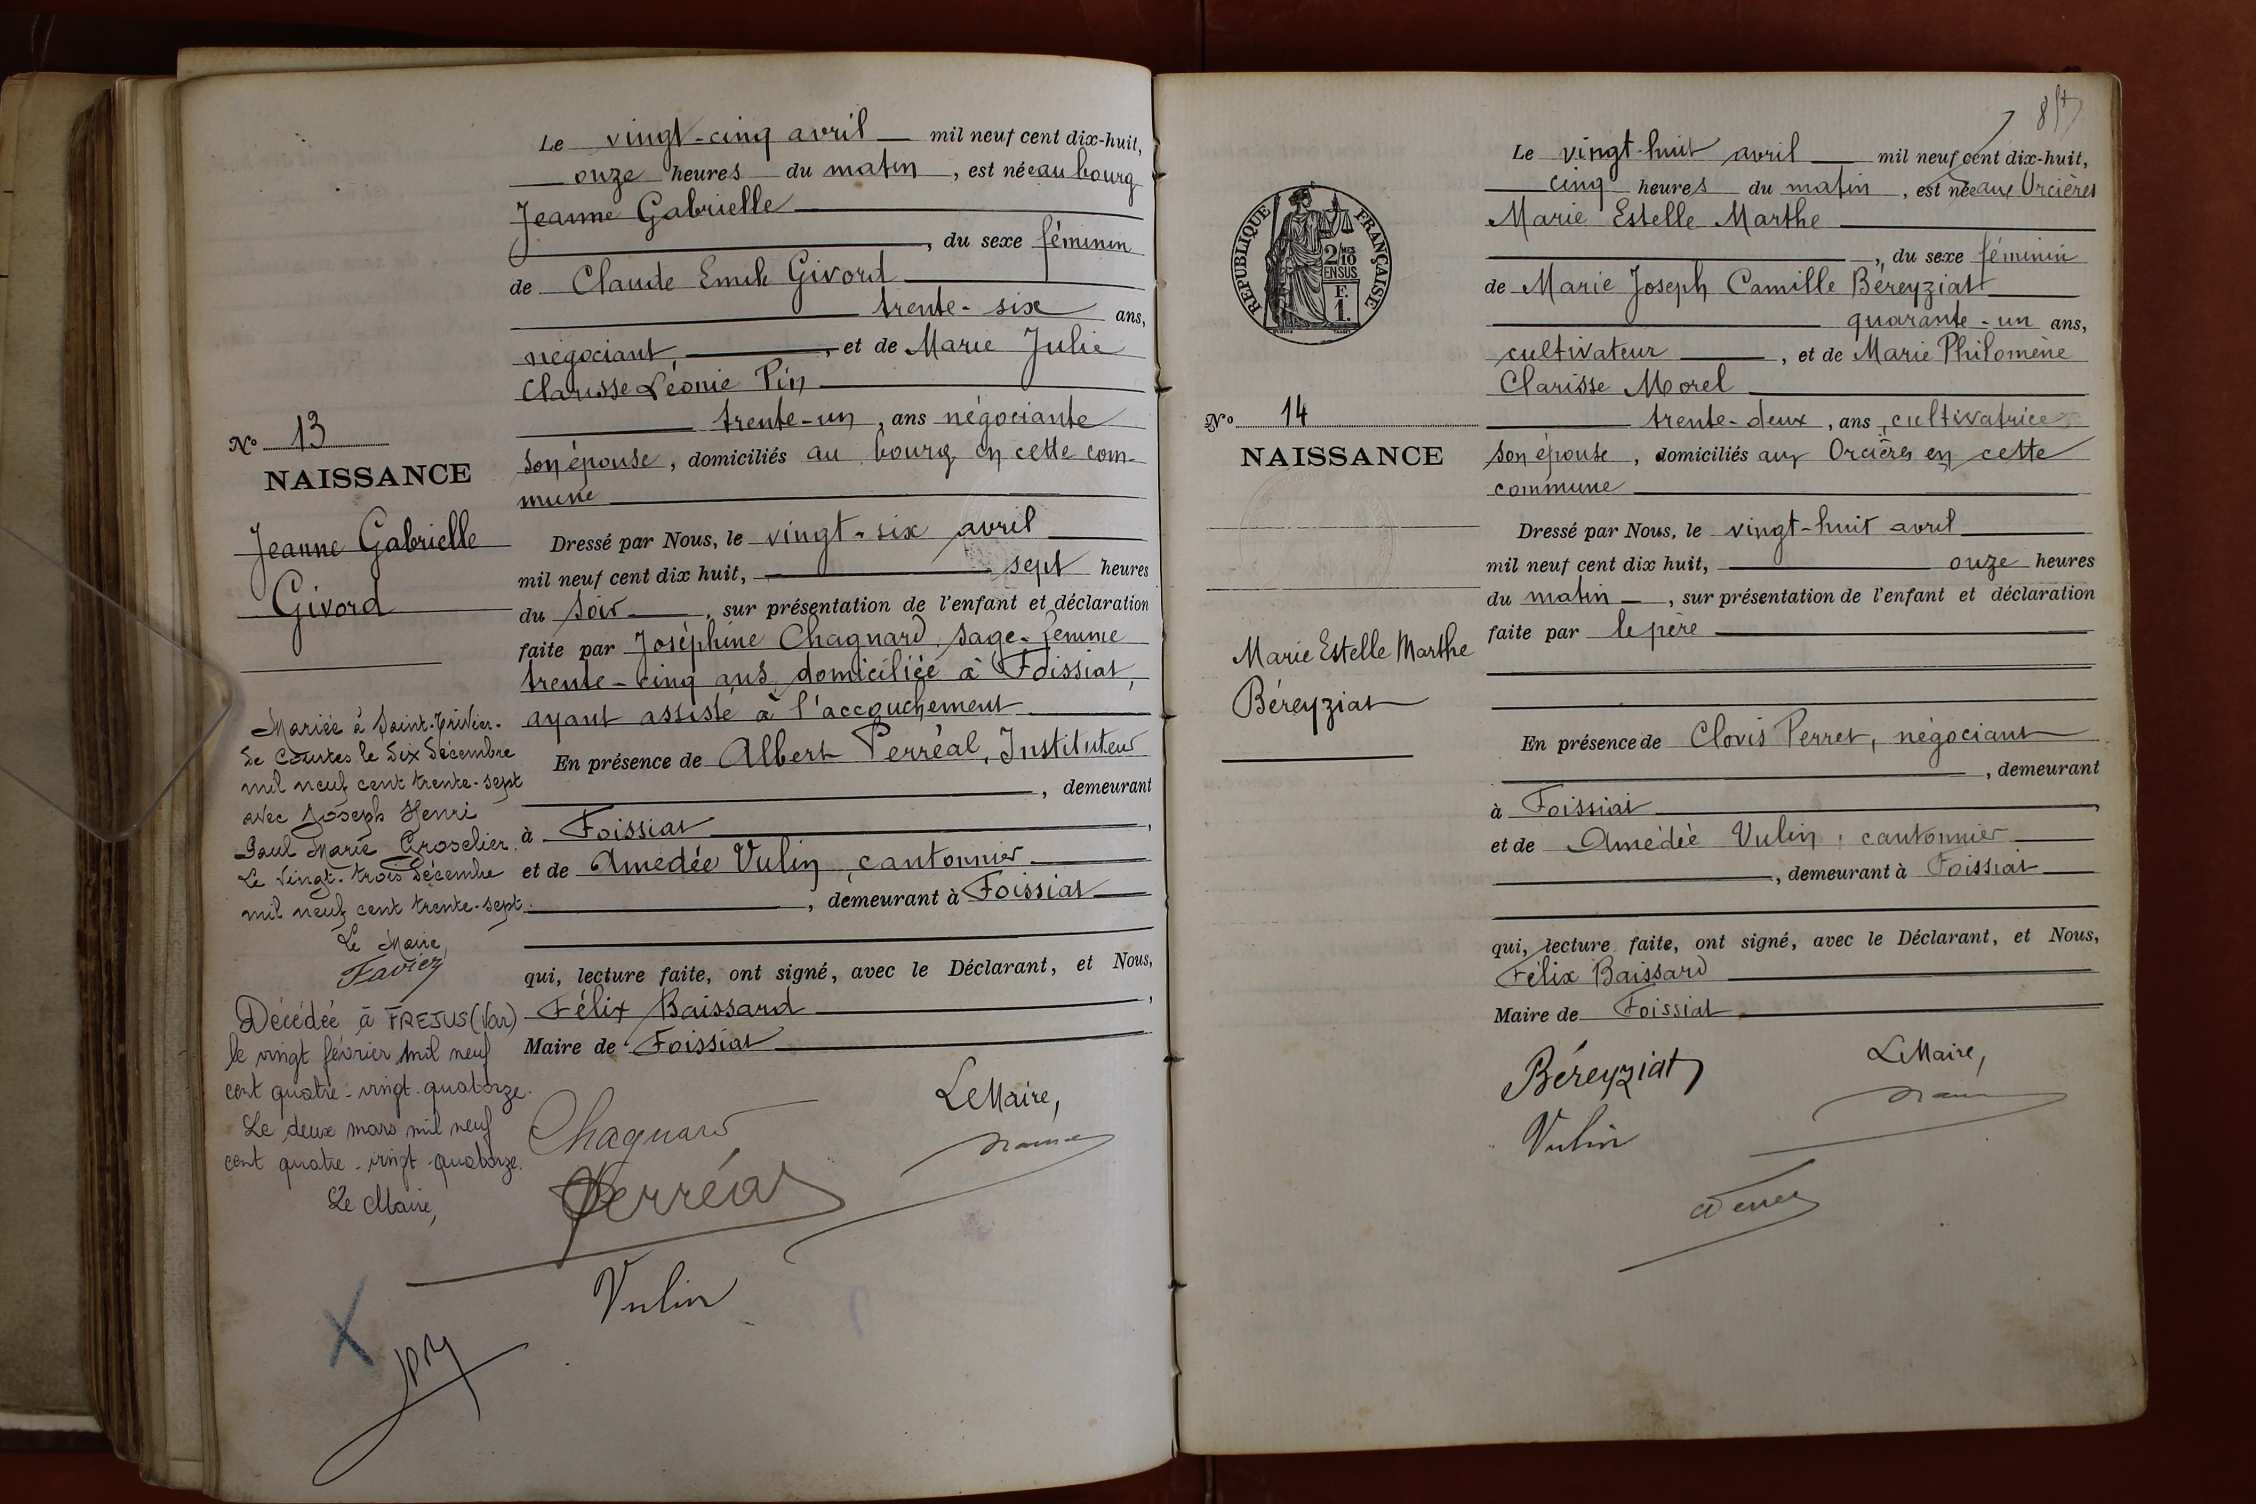 Le vingt-cinq avril mil neuf cent dix-huit,
onze heures du matin, est née au bourg
Jeanne Gabrielle
, du sexe féminin
de Claude Emile Givord
trente-six ans,
négociant, et de Marie Julie
Clarisse Léonie Pin
trente-un, ans négociante
son épouse, domiciliés au bourg en cette com-
mune
Dressé par Nous, le vingt-six avril
mil neuf cent dix huit, sept heures
du soir, sur présentation de l'enfant et déclaration
faite par Joséphine Chagnard, sage-femme
trente-cinq ans, domiciliée à Foissiat,
ayant assisté à l'accouchement
En présence de Albert Perréal, Instituteur
, demeurant
à Foissiat,
et de Amédée Vulin, cantonnier
, demeurant à Foissiat
qui, lecture faite, ont signé, avec le Déclarant, et Nous,
Félix Baissard,
Maire de Foissiat
Le Maire,
Chagnard
Perréal
Vulin
No 13
NAISSANCE
Jeanne Gabrielle
Givord
Mariée à Saint-Trivier-
de Courtes le six décembre
mil neuf cent trente-sept
avec Joseph Henri
Paul Marie Groselier.
Le vingt-trois décembre
mil neuf cent trente-sept.
Le Maire,
Favier
Décédée à FREJUS (Var)
le vingt février mil neuf
cent quatre-vingt-quatorze.
Le deux mars mil neuf
cent quatre-vingt-quatorze.
Le Maire,
Le vingt-huit avril mil neuf cent dix-huit,
cinq heures du matin, est née aux Orcières
Marie Estelle Marthe
, du sexe féminin
de Marie Joseph Camille Béreyziat
quarante-un ans,
cultivateur, et de Marie Philomène
Clarisse Morel
trente-deux, ans, cultivatrice
son épouse, domiciliés aux Orcières en cette
commune
Dressé par Nous, le vingt-huit avril
mil neuf cent dix huit, onze heures
du matin, sur présentation de l'enfant et déclaration
faite par le père
En présence de Clovis Perret, négociant
, demeurant
à Foissiat,
et de Amédée Vulin, cantonnier
, demeurant à Foissiat
qui, lecture faite, ont signé, avec le Déclarant, et Nous,
Félix Baissard
Maire de Foissiat
Le Maire,
Béreyziat
Vulin
RÉPUBLIQUE FRANÇAISE
2/10
EN SUS
F.
1.
No 14
NAISSANCE
Marie Estelle Marthe
Béreyziat